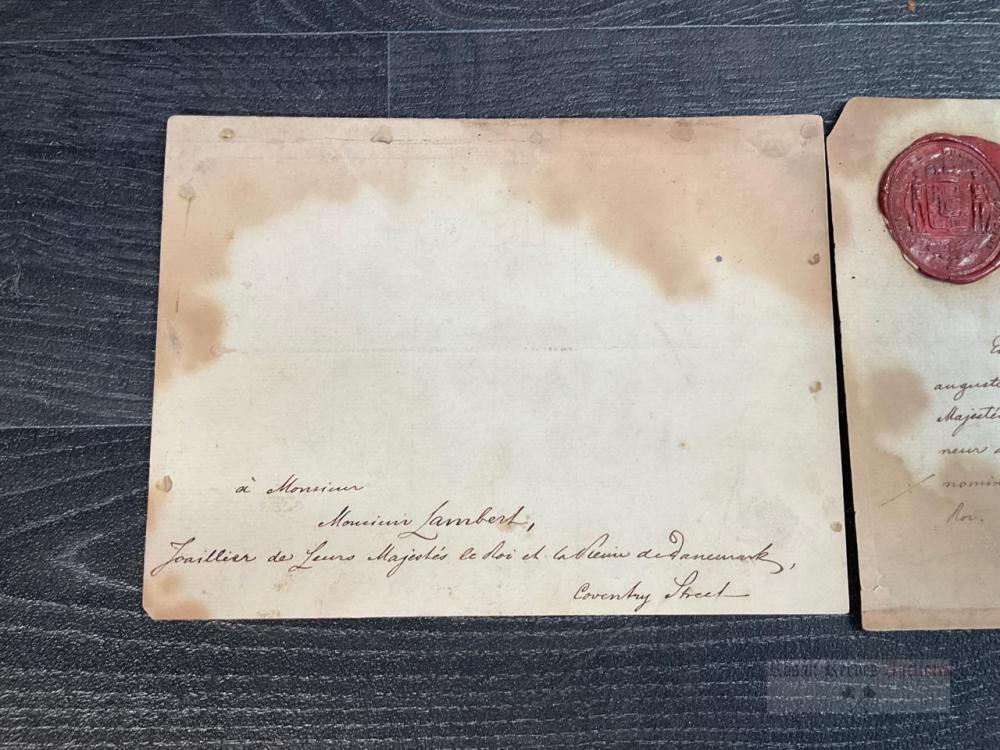 à Monsieur
Monsieur Lambert,
Joaillier de Leurs Majestés le Roi et la Reine de Danemark,
Coventry Street
auguste
Majesté
neur
nomin
Roi.